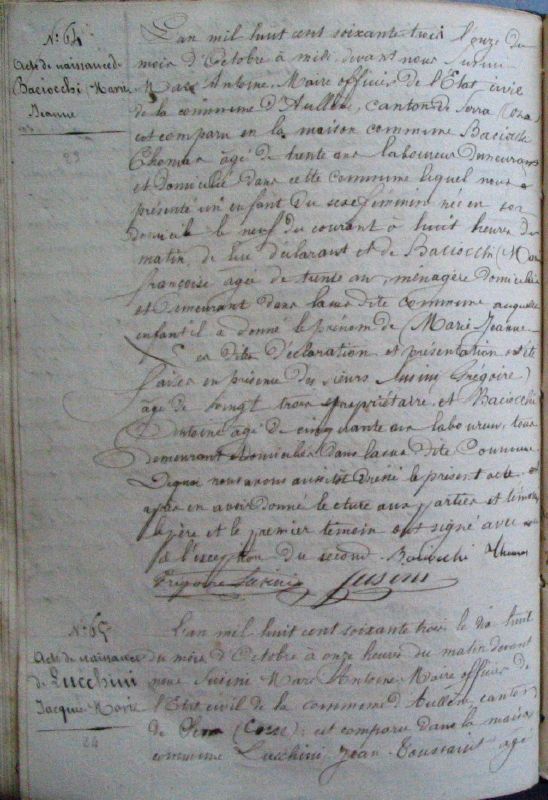 N.º 64
Acte de naissance de
Baciocchi (Marie
Jeanne
23
L'an mil huit cent soixante trois l'onze du
mois d'Octobre à midi devant nous Susini
Marc Antoine Maire officier de l'Etat civil
de la commune d'Aullène, canton de Serra (Corse)
est comparu en la maison commune Baciocchi
Thomas âgé de trente ans laboureur demeurant
et domicilié dans cette commune lequel nous a
présenté un enfant du sexe féminin née en son
domicile le neuf du courant à huit heures du
matin de lui déclarant et de Baciocchi (Marie
françoise agée de trente ans, ménagère domiciliée
et demeurant dans la sus dite commune auquel
enfant il a donné le prénom de Marie Jeanne
Les dites déclaration et présentation ont été
faites en présence des sieurs Susini Grégoire
âgé de vingt trois propriétaire et Baciocchi
Antoine âgé de cinquante ans laboureur, tous
demeurant domiciliés dans la sus dite Commune
De quoi nous avons aussitôt dressé le présent acte et
après en avoir donné lecture aux parties et témoins
le père et le premier témoin ont signé avec nous
à l'exception du second. Baciocchi Thomas
Grégoire Susini Susini
N.º 65
Acte de naissance
de Lucchini
Jacques Marie
24
L'an mil huit cent soixante trois le dix huit
du mois d'Octobre à onze heures du matin devant
nous Susini Marc Antoine Maire officier de
l'Etat civil de la commune d'Aullène canton
de Serra (Corse) est comparu dans la maison
commune Lucchini Jean Toussaint agé